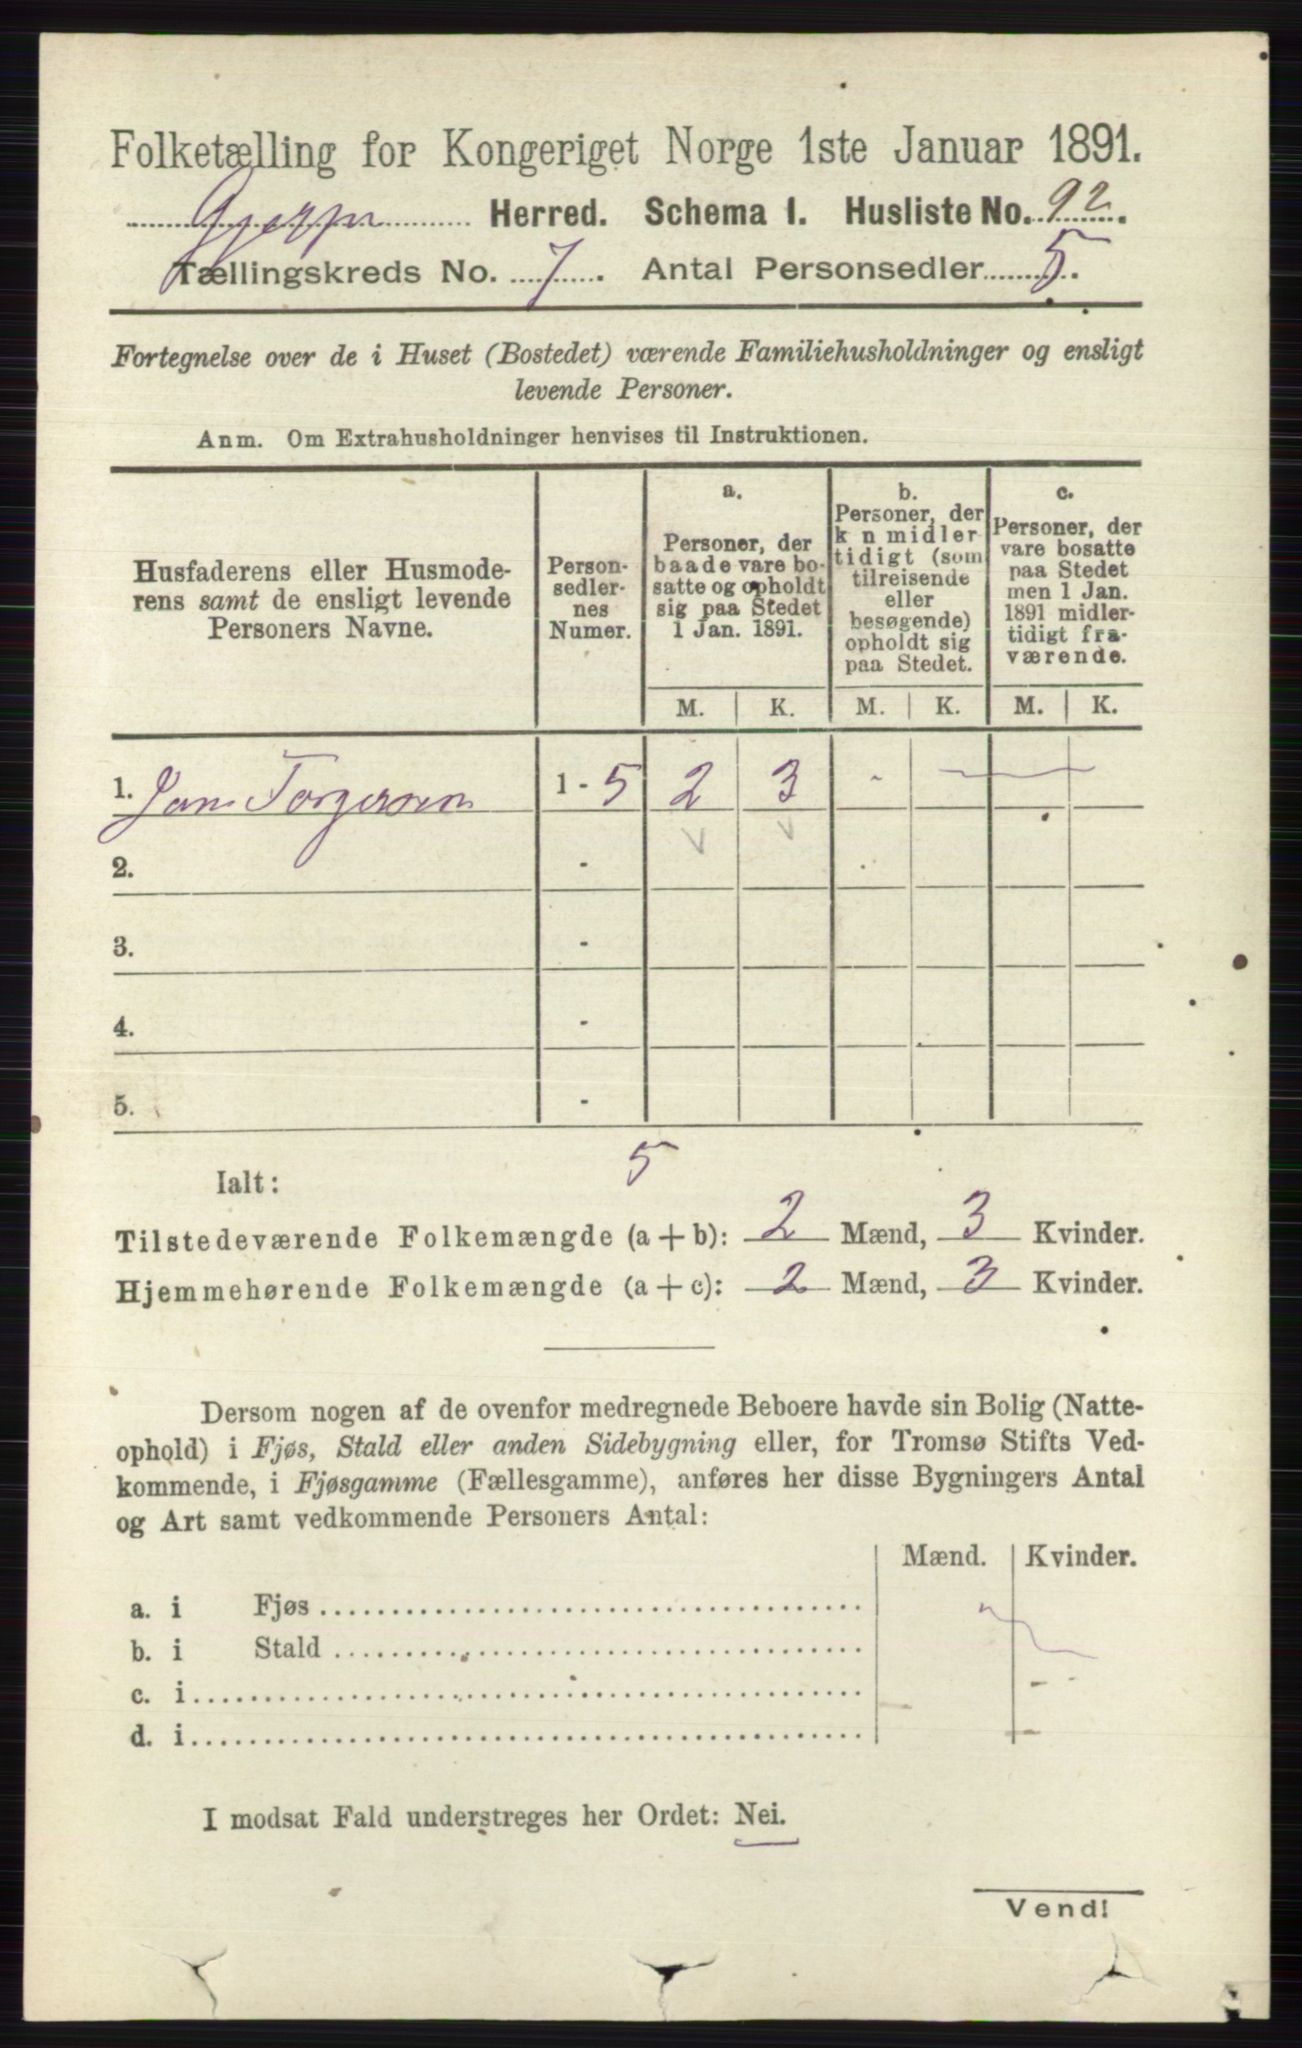 Folketælling for Kongeriget Norge 1ste Januar 1891.
Gjerpen Herred. Schema 1. Husliste No. 92.
Tællingskreds No. 7. Antal Personsedler 5.
Fortegnelse over de i Huset (Bostedet) værende Familiehusholdninger og ensligt
levende Personer.
Anm. Om Extrahusholdninger henvises til Instruktionen.
Husfaderens eller Husmode-
rens samt de ensligt levende
Personers Navne.
Person-
sedler-
nes
Numer.
a.
Personer, der
baade vare bo-
satte og opholdt
sig paa Stedet
1 Jan. 1891.
b.
Personer, der
k n midler-
tidigt (som
tilreisende
eller
besøgende)
opholdt sig
paa Stedet.
c.
Personer, der
vare bosatte
paa Stedet
men 1 Jan.
1891 midler-
tidigt fra-
værende.
M. K. M. K. M. K.
1. Jan Torgersen 1 - 5 2 3 -
2. -
3. -
4. -
5. -
5
Ialt:
Tilstedeværende Folkemængde (a + b): 2 Mænd, 3 Kvinder.
Hjemmehørende Folkemængde (a + c): 2 Mænd, 3 Kvinder.
Dersom nogen af de ovenfor medregnede Beboere havde sin Bolig (Natte-
ophold) i Fjøs, Stald eller anden Sidebygning eller, for Tromsø Stifts Ved-
kommende, i Fjøsgamme (Fællesgamme), anføres her disse Bygningers Antal
og Art samt vedkommende Personers Antal:
Mænd. Kvinder.
a. i Fjøs
b. i Stald
c. i
d. i
I modsat Fald understreges her Ordet: Nei.
Vend!